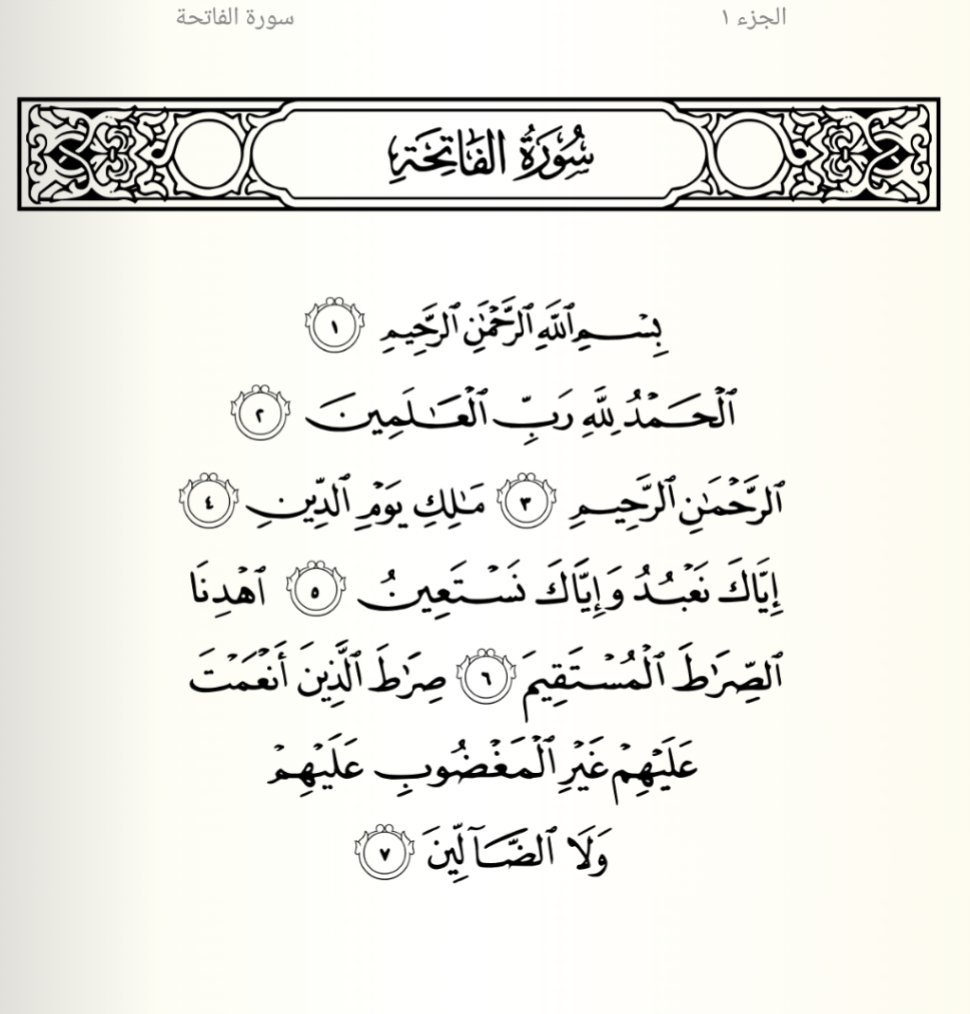 الجزء ١
سورة الفاتحة
سُورَةُ الفَاتِحَةِ
بِسْمِ ٱللَّهِ ٱلرَّحْمَٰنِ ٱلرَّحِيمِ ١
ٱلْحَمْدُ لِلَّهِ رَبِّ ٱلْعَـٰلَمِينَ ٢
ٱلرَّحْمَـٰنِ ٱلرَّحِيمِ ٣ مَـٰلِكِ يَوْمِ ٱلدِّينِ ٤
إِيَّاكَ نَعْبُدُ وَإِيَّاكَ نَسْتَعِينُ ٥ ٱهْدِنَا
ٱلصِّرَٰطَ ٱلْمُسْتَقِيمَ ٦ صِرَٰطَ ٱلَّذِينَ أَنْعَمْتَ
عَلَيْهِمْ غَيْرِ ٱلْمَغْضُوبِ عَلَيْهِمْ
وَلَا ٱلضَّآلِّينَ ٧